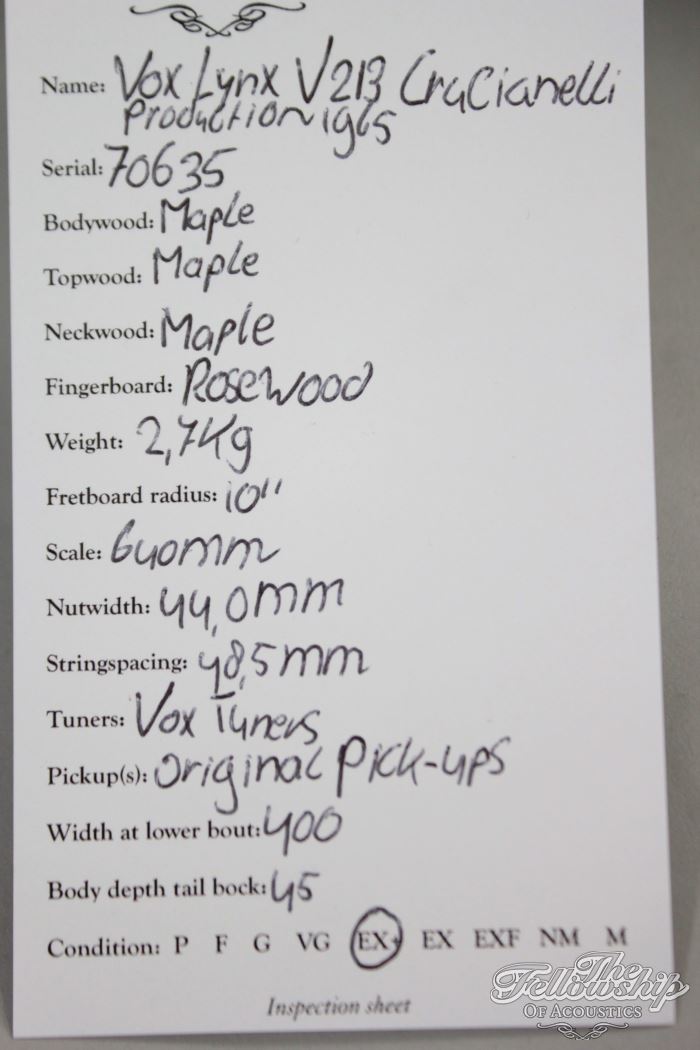 Name: Vox Lynx V213 Crucianelli
Production 1965
Serial: 70635
Bodywood: Maple
Topwood: Maple
Neckwood: Maple
Fingerboard: Rosewood
Weight: 2,7Kg
Fretboard radius: 10"
Scale: 640mm
Nutwidth: 44,0mm
Stringspacing: 48,5mm
Tuners: Vox Tuners
Pickup(s): Original Pick-ups
Width at lower bout: 400
Body depth tail bock: 45
Condition: P F G VG EX+ EX EXF NM M
Inspection sheet
The
Fellowship
Of Acoustics